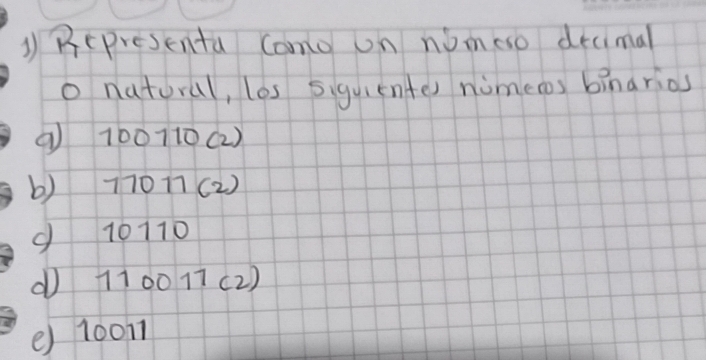 1) Representa como un número decimal
o natural, los siguientes números binarios
a) 100110(2)
b) 11011(2)
c) 10110
d) 110011(2)
e) 10011